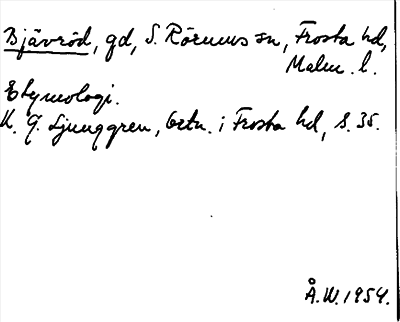 Bjävröd, gd, S. Rörums sn, Frosta hd,
Malm. l.
Etymologi.
K. G. Ljunggren, betn. i Frosta hd, s. 35.
Å.W. 1954.